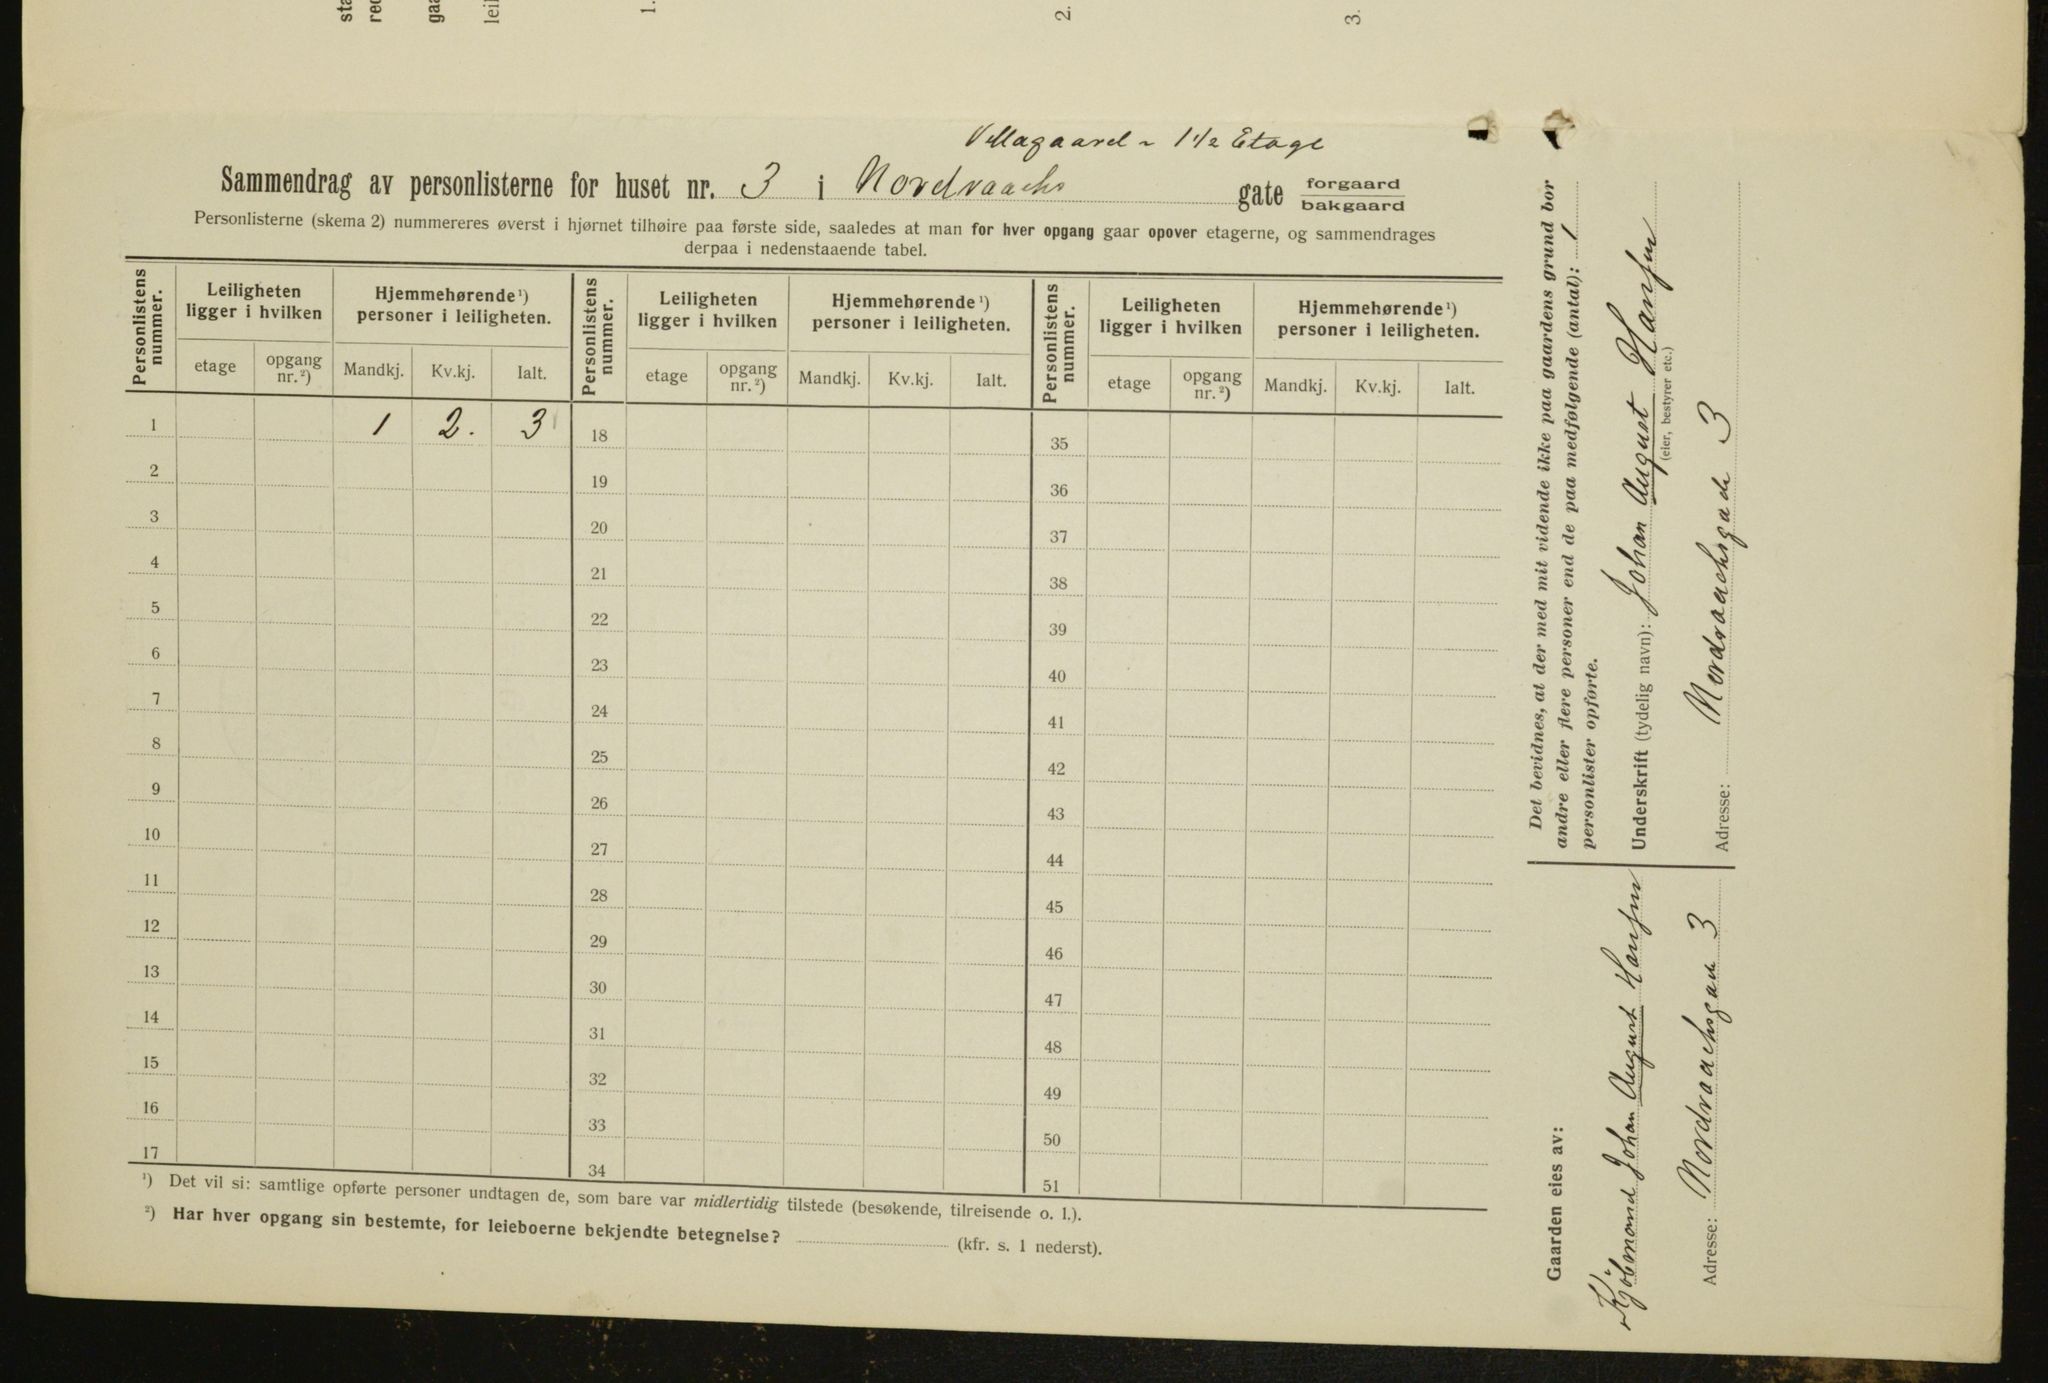 sta
red
gaa
leil
1.
2.
3.
Villagaard ~ 1 1/2 Etage
Sammendrag av personlisterne for huset nr. 3 i Nordraachs gate forgaard
bakgaard
Personlisterne (skema 2) nummereres øverst i hjørnet tilhøire paa første side, saaledes at man for hver opgang gaar opover etagerne, og sammendrages
derpaa i nedenstaaende tabel.
Personlistens nummer. Leiligheten ligger i hvilken Hjemmehørende¹) personer i leiligheten. Personlistens nummer. Leiligheten ligger i hvilken Hjemmehørende¹) personer i leiligheten. Personlistens nummer. Leiligheten ligger i hvilken Hjemmehørende¹) personer i leiligheten.
etage opgang nr.²) Mandkj. Kv.kj. Ialt. etage opgang nr.²) Mandkj. Kv.kj. Ialt. etage opgang nr.²) Mandkj. Kv.kj. Ialt.
1 1 2. 3 18 35
2 19 36
3 20 37
4 21 38
5 22 39
6 23 40
7 24 41
8 25 42
9 26 43
10 27 44
11 28 45
12 29 46
13 30 47
14 31 48
15 32 49
16 33 50
17 34 51
¹) Det vil si: samtlige opførte personer undtagen de, som bare var midlertidig tilstede (besøkende, tilreisende o. l.).
²) Har hver opgang sin bestemte, for leieboerne bekjendte betegnelse? (kfr. s. 1 nederst).
Det bevidnes, at der med mit vidende ikke paa gaardens grund bor
andre eller flere personer end de paa medfølgende (antal): 1
personlister opførte.
Underskrift (tydelig navn): Johan August Hansen
(eier, bestyrer etc.)
Adresse: Nordraachsgade 3
Gaarden eies av:
Kjøbmand Johan August Hansen
Adresse: Nordraachsgade 3